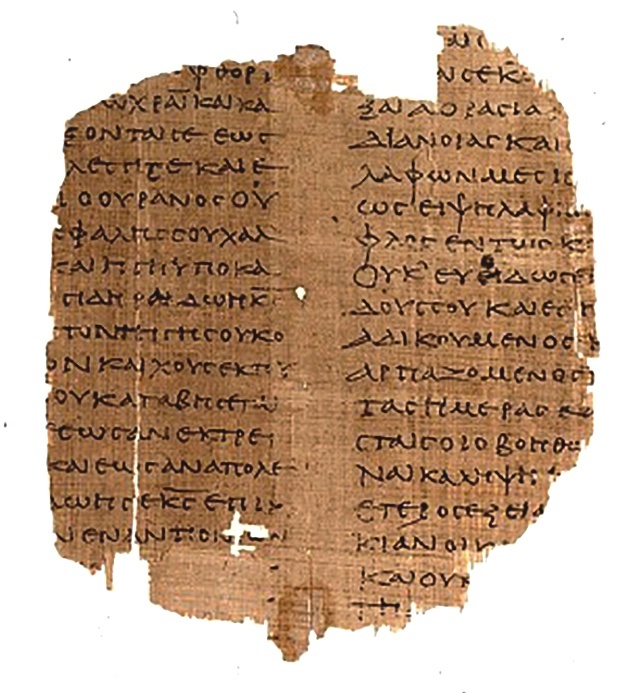 ΦΘΟΡΙ
ΩΧΡΑΙ ΚΑΙ ΚΑ
ΞΟΝΤΑΙ ΣΕ ΕΩΣ
ΛΕΣΗ ΣΕ ΚΑΙ Ε
Ι Ο ΟΥΡΑΝΟΣ ΟΥ
ΕΦΑΛΗΣ ΣΟΥ ΧΑΛ
ΚΑΙ Η ΓΗ Η ΥΠΟΚΑ
ΣΙΔΗΡΑ ΔΩΗ Κ̅Σ̅
ΤΟΝ ΤΗ ΓΗ ΣΟΥ ΚΟ
ΟΝ ΚΑΙ ΧΟΥΣ ΕΚ Τ
ΟΥ ΚΑΤΑΒΗΣΕΤΑΙ
ΕΩΣ ΑΝ ΕΚΤΡΕΙ
ΚΑΙ ΕΩΣ ΑΝ ΑΠΟΛΕ
ΔΩΗ ΣΕ Κ̅Σ̅ ΕΠΙ
Ν ΕΝΑΝΤΙΟΝ
ΑΙ ΣΕ Κ
ΚΑΙ ΑΟΡΑΣΙΑ
ΔΙΑΝΟΙΑΣ ΚΑΙ
ΛΑΦΩΝ ΜΕΣ
ΩΣ ΕΙ ΨΗΛΑΦΗ
ΦΛΟΣ ΕΝ ΤΩΙ ΣΚ
ΟΥΚ ΕΥΟΔΩΣΕ
ΔΟΥΣ ΣΟΥ ΚΑΙ ΕΣ
ΑΔΙΚΟΥΜΕΝΟΣ
ΑΡΠΑΖΟΜΕΝΟΣ
ΤΑΣ ΗΜΕΡΑΣ Κ
ΣΤΑΙ ΣΟΙ Ο ΒΟΗΘΩ
ΝΑΙΚΑ ΛΗΨΗ
ΕΤΕΡΟΣ ΕΞΕΙ Α
ΚΙΑΝ ΟΙΚ
ΚΑΙ ΟΥΚ